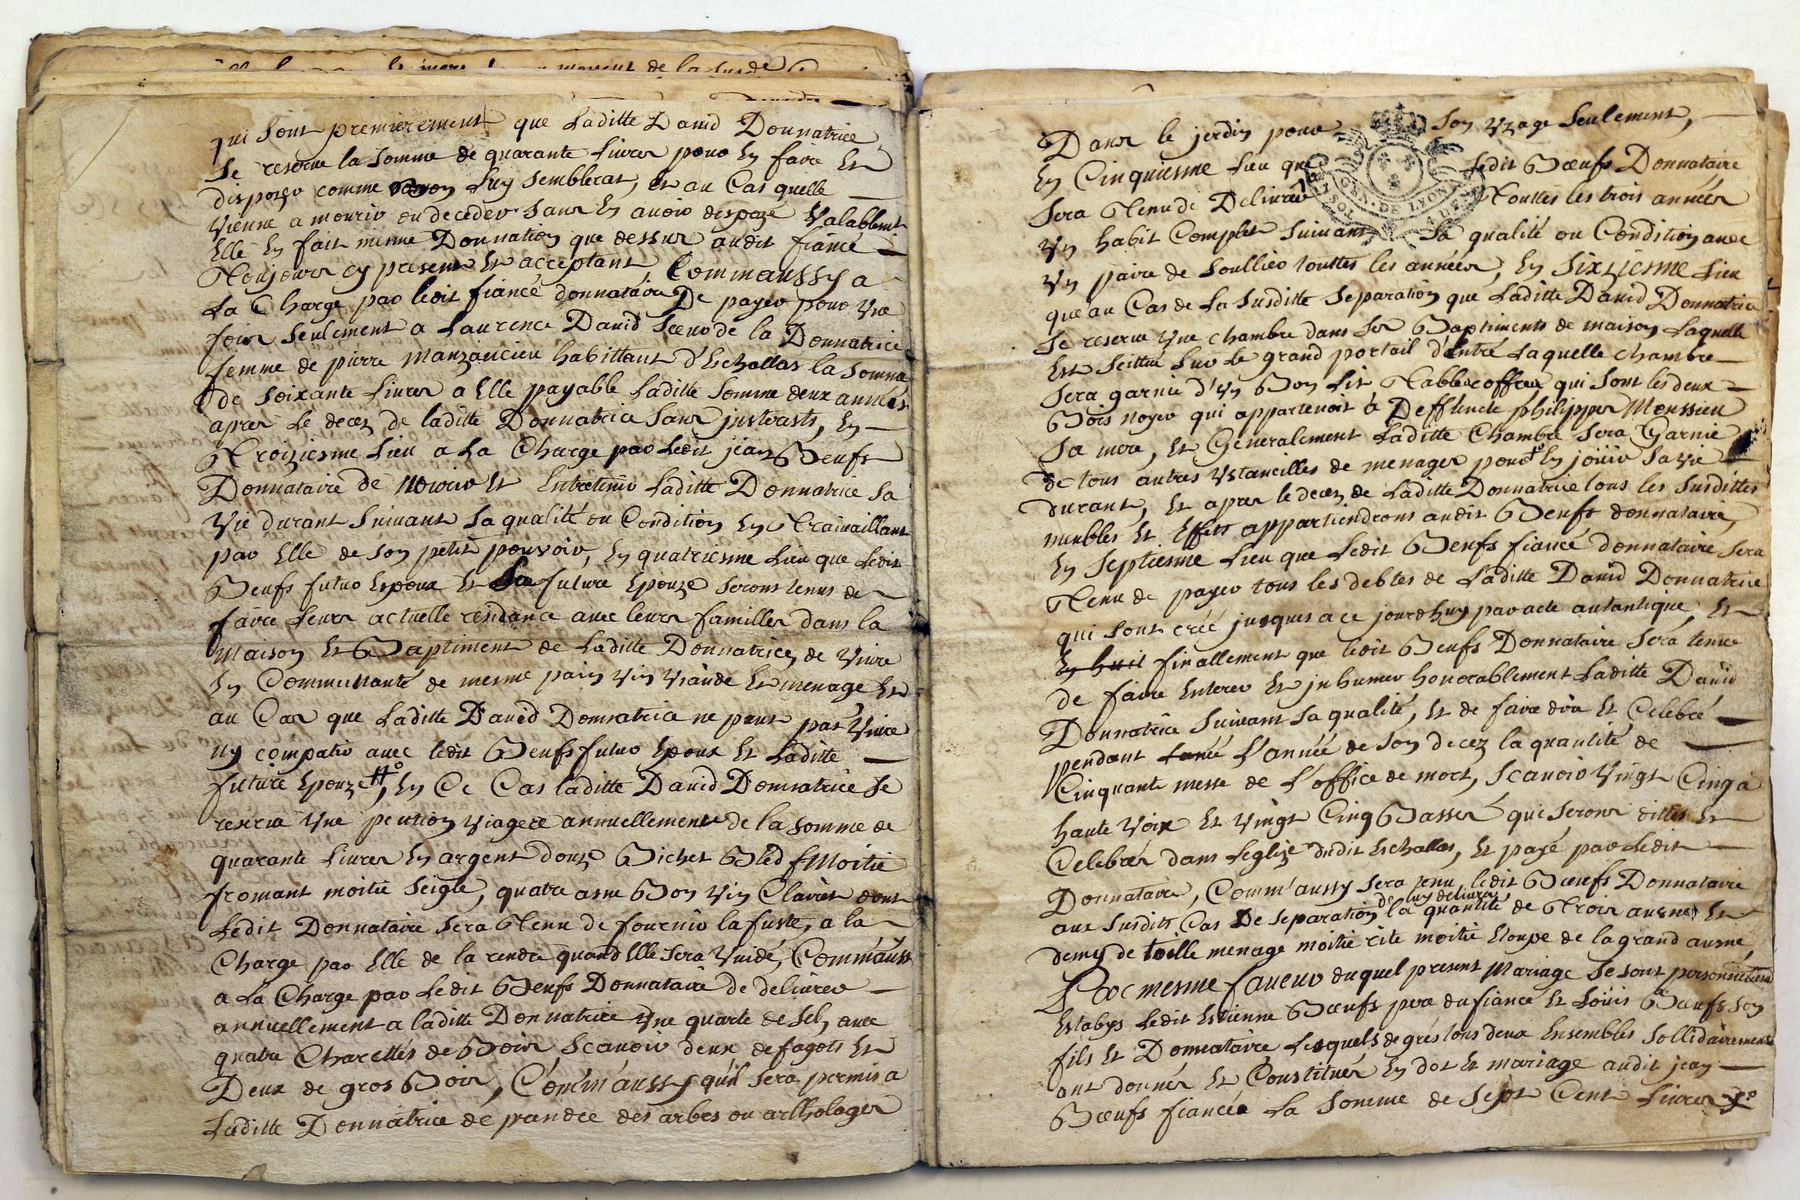 qui sont premierement que Laditte David Donnatrice
Se reserve la somme de quarante Livres pour En faire Et
disposer comme bon Luy Semblerat, et au Cas quelle
vienne a mourir ou deceder Sans En avoir dispozé Valablemt
Elle En fait mesme Donnation que dessus audit fiancé
Toujours cy present Et acceptant, Comm'aussy a
La Charge par ledit fiancé donnataire De payer pour Une
fois Seulement a Laurence David Sœur de la Donnatrice
femme de pierre Manzancieu habittant d'Eschallas la Somme
de soixante Livres a Elle payable Laditte Somme deux années
apres Le decez de laditte Donnatrice Sans justerests, En
Troiziesme Lieu a La Charge par Ledit jean Bœufs
Donnataire de nourir Et Entretenir Laditte Donnatrice Sa
Vie durant Suivant Sa qualité ou Condition En Travaillant
par Elle de Son petit pouvoir, En quatriesme Lieu que Ledit
Bœufs futur Epoux Et Sa future Epouze Seront tenus de
faire Leurs actuelle residance avec leurs familles dans la
Maison Et Baptiment de Laditte Donnatrice, de Vivre
En Communauté de mesme pain Vin Viande Et menage Et
au Cas que Laditte David Donnatrice ne peut pas Vivre
ny compatir avec ledit Bœufs futur Epoux Et Laditte
future Epouze, En Ce Cas laditte David Donnatrice Se
reserva Une pention Viagere annuellement de la Somme de
quarante Livres En argent douze Bichet Bled Moitié
fromant moitié Seigle, quatre asne Bon Vin Clairet dont
Ledit Donnataire Sera Tenu de fournir la fuste, a la
Charge par Elle de la rendre quand Elle Sera Vuide, Comm'aussy
a La Charge par Ledit Bœufs Donnataire de delivrer
annuellement a laditte Donnatrice Une quarte de Sel, avec
quatre Charettes de Bois, Scavoir deux de fagots Et
Deux de gros Bois, Comm'aussy qu'il Sera permis a
Laditte Donnatrice de prandre des arbes ou arthologes
Dans le jerdin pour Son Usage Seulement,
En Cinquiesme Lieu que Ledit Bœufs Donnataire
Sera Tenu de Delivrer Touttes les trois années
Un habit Complet Suivant Sa qualité ou Condition avec
Un paire de Soullier touttes les années, En Sixziesme Lieu
que au Cas de La Susditte Separation que Laditte David Donnatrice
Se reserve Une chambre dans Ses Baptiments de maison, Laquelle
Est Scittué Sur Le grand portail d'Entré Laquelle chambre
Sera garnie d'Un Bon Lit Table coffre qui Sont les deux
Bois noyer qui appartenoit à Deffuncte philippes Moussieu
Sa mere, Et Generalement Laditte Chambre Sera Garnie
de tous autres Ustancilles de menages pour En jouir Sa Vie
durant, Et apres le decez de Laditte Donnatrice tous les Susdittes
meubles Et Effets appartiendront audit Bœufs donnataire,
En Septiesme Lieu que Ledit Bœufs fiancé donnataire Sera
Tenu de payer tous les debtes de Laditte David Donnatrice
qui Sont creé jusques a ce jourdhuy par acte autantique, Et
En huit finallement que ledit Bœufs Donnataire Sera tenue
de faire Enterer Et jnhumer honorablement Laditte David
Donnatrice Suivant Sa qualité, Et de faire dire Et Celebré
pendant L'année de Son decez la quantité de
Cinquante messe de L'office de mort, Scavoir Vingt Cinq a
haute Voix Et Vingt Cinq Basses que Seront dittes Et
Celebrés dans Leglize dudit Eschallas, Et payé par Ledit
Donnataire, Comm'aussy Sera tenu ledit Bœufs Donnataire
aux Susdits Cas De Separation de luy delivrer la quantité de Trois ausnes Et
demy de toille menage moitié rite moitié Etoupe de la grand ausne,
En mesme faveur duquel present Mariage Se Sont personnellement
Establys Ledit Estienne Bœufs pere du fiancé Et Loüis Bœufs Son
fils Et Donnataire Lesquels de gres tous deux Ensembles Sollidairement
ont donnés Et Constitués En dot Et mariage audit jean
Bœufs fiancé La Somme de Sept Cent Livres
GEN. DE LYON